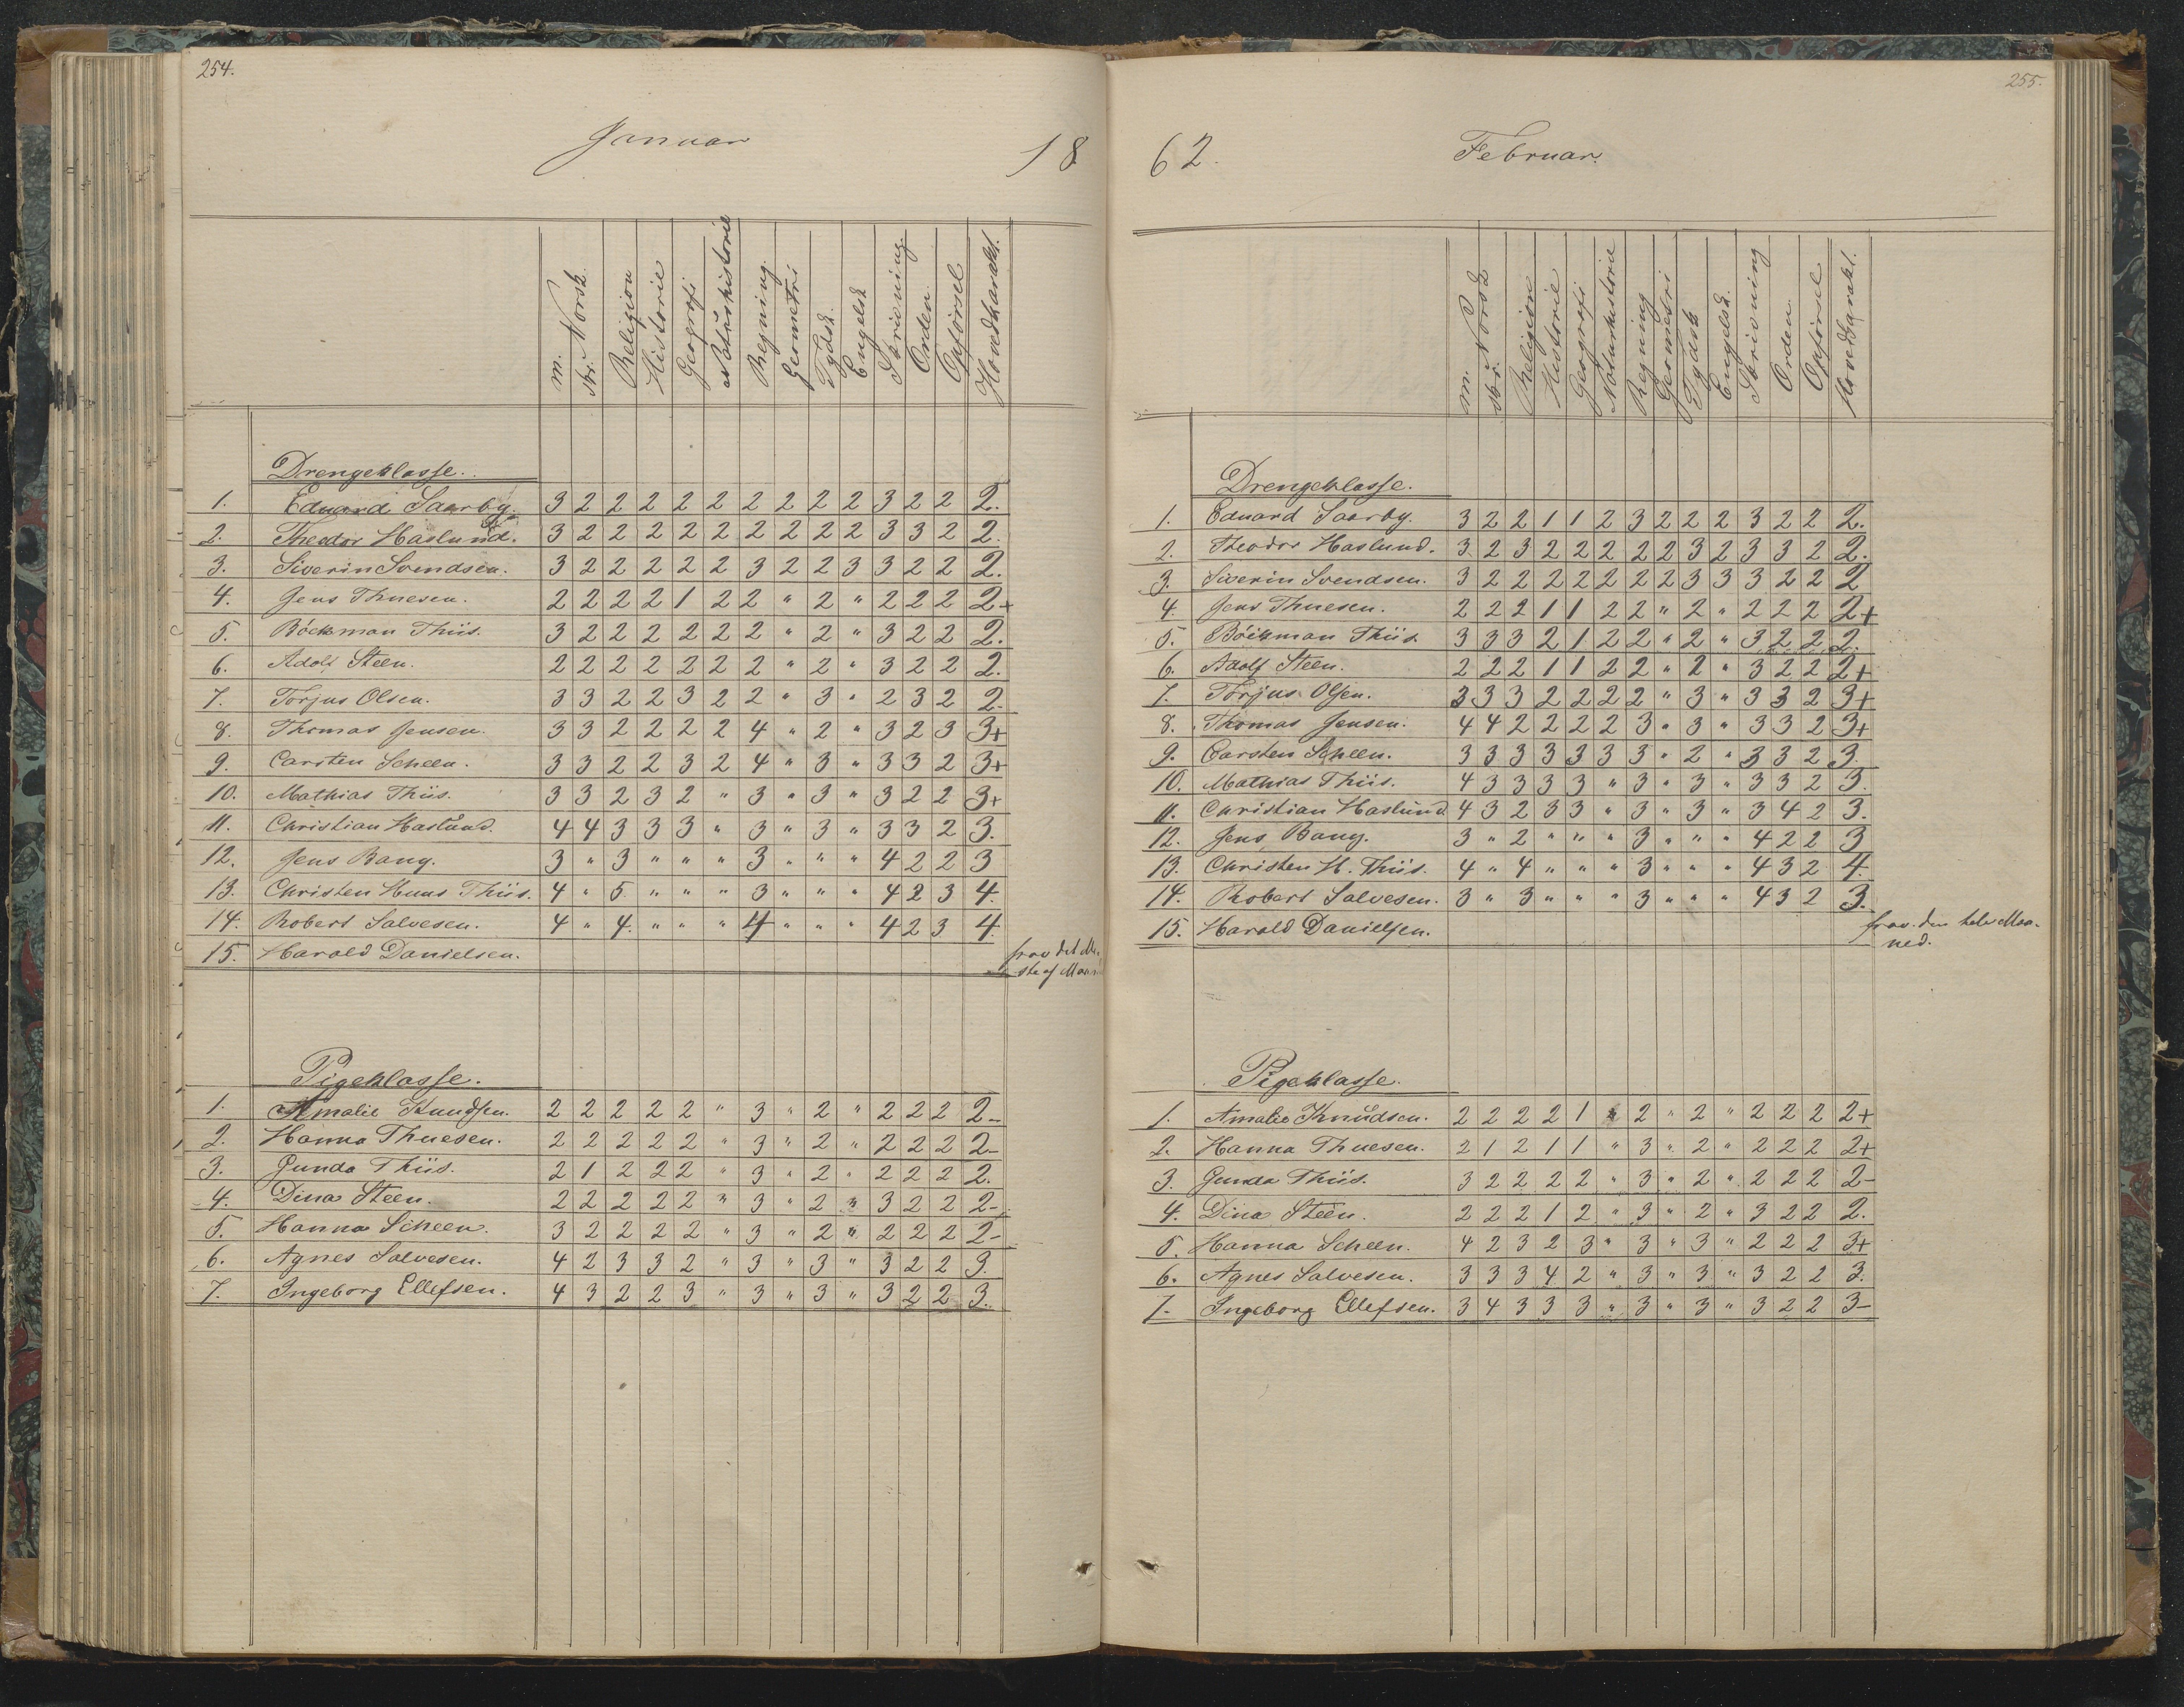 254.
Januar 18
m. Norsk.
skr.
Religion
Historie
Geografi
Naturhistorie
Regning.
Geometri
Tydsk.
Engelsk
Skrivning
Orden.
Opførsel
Hovedkarakt.
Drengeklasse.
1. Eduard Saarby. 3 2 2 2 2 2 2 2 2 2 3 2 2 2.
2. Theodor Haslund. 3 2 2 2 2 2 2 2 2 2 3 3 2 2.
3. Siverin Svendsen. 3 2 2 2 2 2 3 2 2 3 3 2 2 2.
4. Jens Thuesen. 2 2 2 2 1 2 2 " 2 " 2 2 2 2+
5. Böckman Thiis. 3 2 2 2 2 2 2 " 2 " 3 2 2 2.
6. Adolf Steen. 2 2 2 2 2 2 2 " 2 " 3 2 2 2.
7. Torjus Olsen. 3 3 2 2 3 2 2 " 3 " 2 3 2 2.
8. Thomas Jensen. 3 3 2 2 2 2 4 " 2 " 3 2 3 3+
9. Carsten Scheen. 3 3 2 2 3 2 4 " 3 " 3 3 2 3+
10. Mathias Thiis. 3 3 2 3 2 " 3 " 3 " 3 2 2 3+
11. Christian Haslund. 4 4 3 3 3 " 3 " 3 " 3 3 2 3.
12. Jens Bang. 3 " 3 " " " 3 " " " 4 2 2 3
13. Christen Huus Thiis. 4 " 5 " " " 3 " " " 4 2 3 4.
14. Robert Salvesen. 4 " 4. " " " 4 " " " 4 2 3 4.
15. Harald Danielsen. frav det Me-
ste af
Pigeklasse.
1. Amalie Knudsen. 2 2 2 2 2 " 3 " 2 " 2 2 2 2-
2. Hanna Thuesen. 2 2 2 2 2 " 3 " 2 " 2 2 2 2-
3. Gunda Thiis. 2 1 2 2 2 " 3 " 2 " 2 2 2 2.
4. Dina Steen. 2 2 2 2 2 " 3 " 2 " 3 2 2 2-
5. Hanna Scheen. 3 2 2 2 2 " 3 " 2 " 2 2 2 2-
6. Agnes Salvesen. 4 2 3 3 2 " 3 " 3 " 3 2 2 3.
7. Ingeborg Ellefsen. 4 3 2 2 3 " 3 " 3 " 3 2 2 3.
255.
62. Februar.
m. Norsk
skr.
Religion
Historie
Geografi
Naturhistorie
Regning
Geometri
Tydsk
Engelsk.
Skrivning
Orden
Opførsel
Hovedkarakt.
Drengeklasse.
1. Eduard Saarby. 3 2 2 1 1 2 3 2 2 2 3 2 2 2.
2. Theodor Haslund. 3 2 3 2 2 2 2 2 3 2 3 3 2 2.
3. Siverin Svendsen. 3 2 2 2 2 2 2 2 3 3 3 2 2 2
4. Jens Thuesen. 2 2 2 1 1 2 2 " 2 " 2 2 2 2+
5. Böckman Thiis. 3 3 3 2 1 2 2 " 2 " 3 2 2 2.
6. Adolf Steen. 2 2 2 1 1 2 2 " 2 " 3 2 2 2+
7. Torjus Olsen. 3 3 3 2 2 2 2 " 3 " 3 3 2 3+
8. Thomas Jensen. 4 4 2 2 2 2 3 " 3 " 3 3 2 3+
9. Carsten Scheen. 3 3 3 3 3 3 3 " 2 " 3 3 2 3.
10. Mathias Thiis. 4 3 3 3 3 " 3 " 3 " 3 3 2 3.
11. Christian Haslund 4 3 2 3 3 " 3 " 3 " 3 4 2 3.
12. Jens Bang. 3 " 2 " " " 3 " " " 4 2 2 3
13. Christen H. Thiis. 4 " 4 " " " 3 " " " 4 3 2 4.
14. Robert Salvesen. 3 " 3 " " " 3 " " " 4 3 2 3.
15. Harald Danielsen. frav. den hele Maa-
ned.
Pigeklasse.
1. Amalie Knudsen. 2 2 2 2 1 " 2 " 2 " 2 2 2 2+
2. Hanna Thuesen. 2 1 2 1 1 " 3 " 2 " 2 2 2 2+
3. Gunda Thiis. 3 2 2 2 2 " 3 " 2 " 2 2 2 2-
4. Dina Steen. 2 2 2 1 2 " 3 " 2 " 3 2 2 2.
5. Hanna Scheen. 4 2 3 2 3 " 3 " 3 " 2 2 2 3+
6. Agnes Salvesen. 3 3 3 4 2 " 3 " 3 " 3 2 2 3.
7. Ingeborg Ellefsen. 3 4 3 3 3 " 3 " 3 " 3 2 2 3-